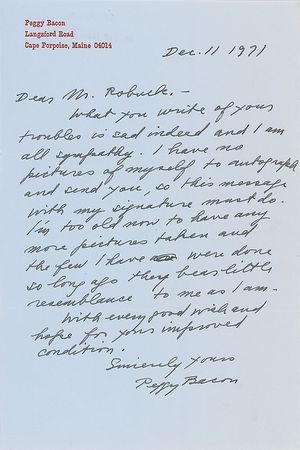 Peggy Bacon
Langsford Road
Cape Porpoise, Maine 04014
Dec. 11 1971
Dear Mr. Robuck. -
What you write of your
troubles is sad indeed and I am
all sympathy. I have no
pictures of myself to autograph
and send you, so this message
with my signature must do.
I'm too old now to have any
more pictures taken and
the few I have were done
so long ago they bear little
resemblance to me as I am -
With every good wish and
hope for your improved
condition.
Sincerely yours
Peggy Bacon